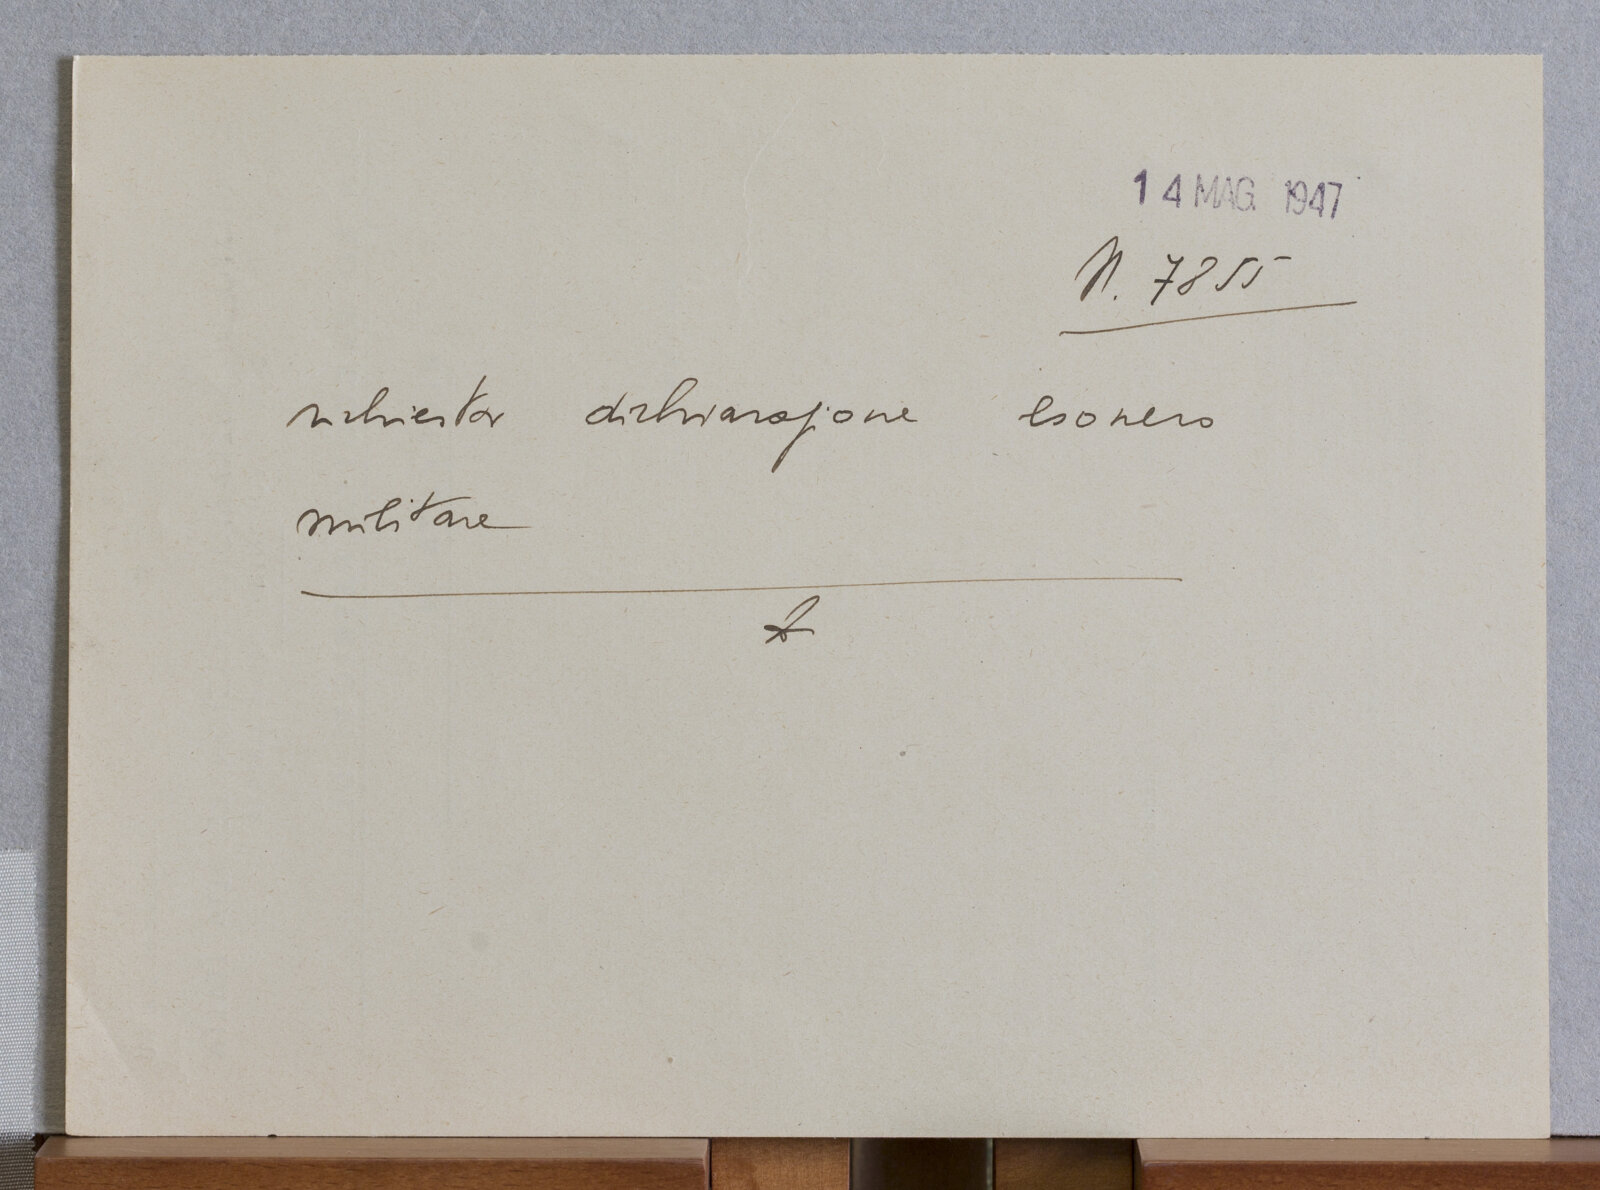 14 MAG. 1947
N. 7855
richiesta dichiarazione esonero
militare